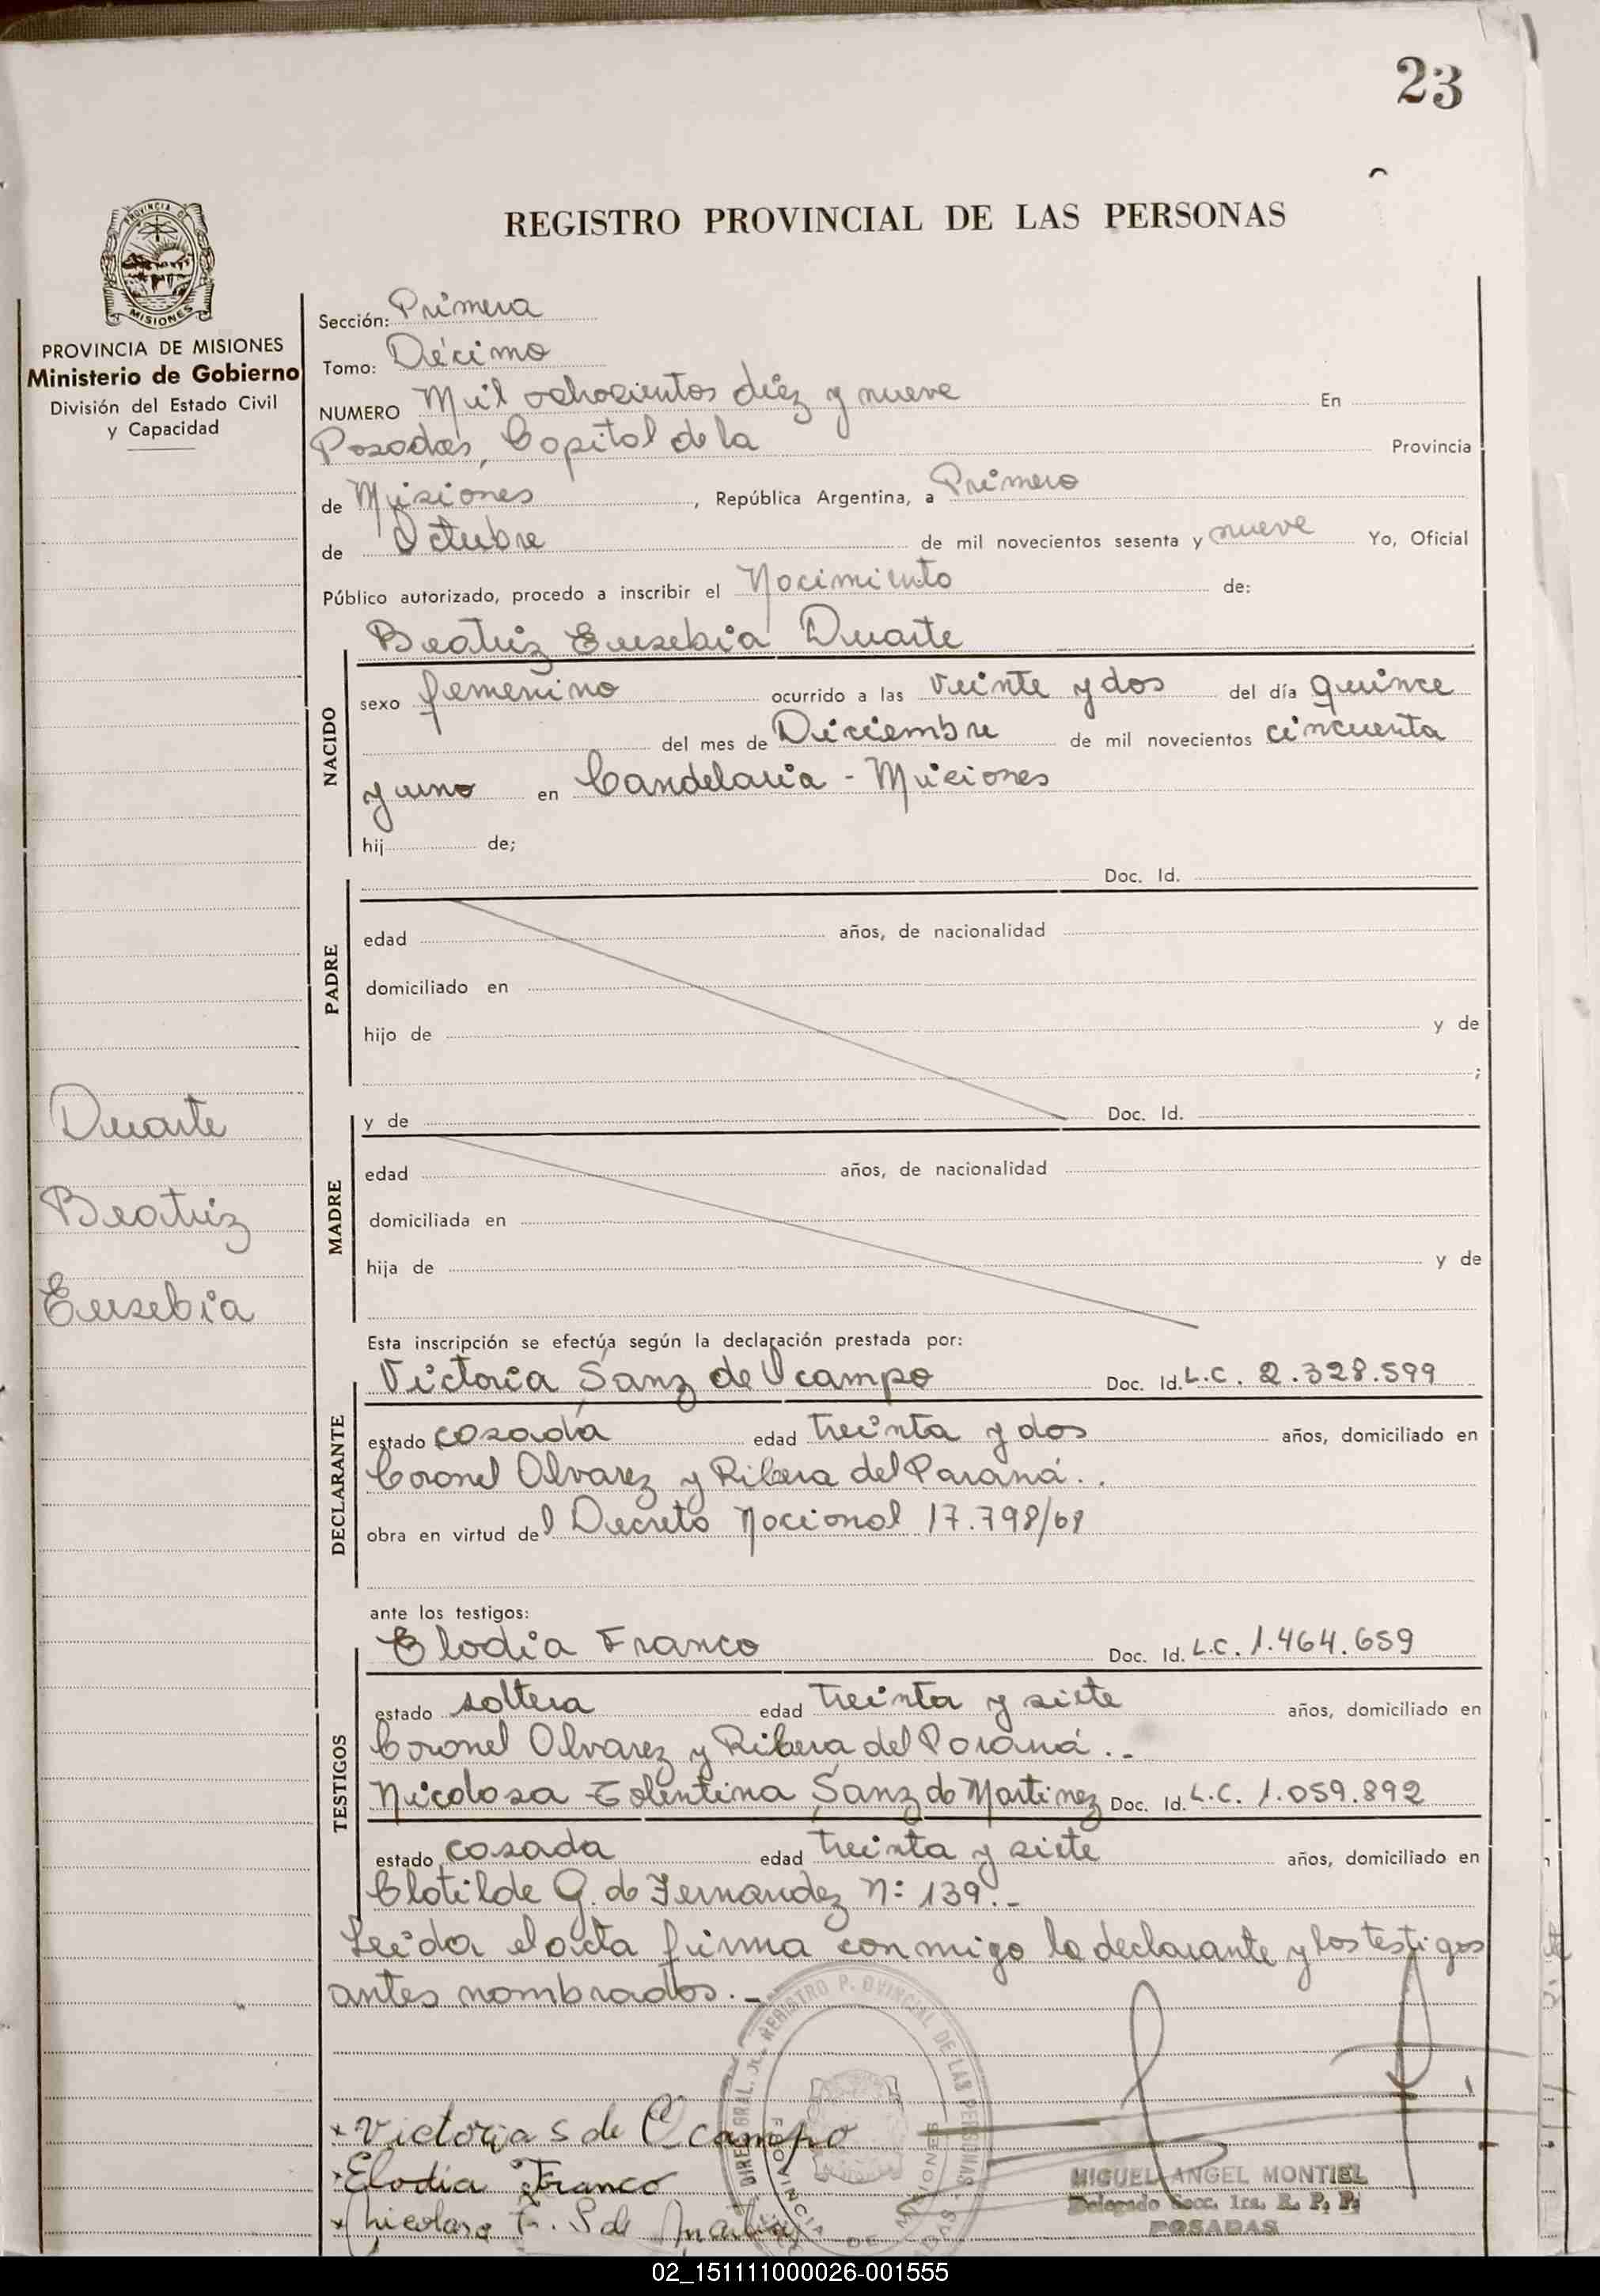 23
REGISTRO PROVINCIAL DE LAS PERSONAS
PROVINCIA DE
MISIONES
PROVINCIA DE MISIONES
Ministerio de Gobierno
División del Estado Civil
y Capacidad
Sección: Primera
Tomo: Décimo
NUMERO Mil ochocientos diez y nueve En
Posadas, Capital de la Provincia
de Misiones, República Argentina, a Primero
de Octubre de mil novecientos sesenta y nueve Yo, Oficial
Público autorizado, procedo a inscribir el Nacimiento de:
Beatriz Eusebia Duarte
NACIDO
sexo femenino ocurrido a las veinte y dos del día quince
del mes de Diciembre de mil novecientos cincuenta
y uno en Candelaria - Misiones
hij de;
PADRE
Doc. Id.
edad años, de nacionalidad
domiciliado en
hijo de y de
;
MADRE
y de Doc. Id.
edad años, de nacionalidad
domiciliada en
hija de y de
Duarte
Beatriz
Eusebia
Esta inscripción se efectúa según la declaración prestada por:
DECLARANTE
Victoria Sanz de Ocampo Doc. Id. L.C. 2.328.599
estado casada edad treinta y dos años, domiciliado en
Coronel Alvarez y Ribera del Paraná..
obra en virtud del Decreto Nacional 17.798/68
ante los testigos:
TESTIGOS
Elodia Franco Doc. Id. L.C. 1.464.659
estado soltera edad treinta y siete años, domiciliado en
Coronel Alvarez y Ribera del Paraná.-
Nicolasa Tolentina Sanz de Martinez Doc. Id. L.C. 1.059.892
estado casada edad treinta y siete años, domiciliado en
Clotilde G. de Fernandez N: 139.-
Leida el acta firma conmigo la declarante y los testigos
antes nombrados.-
DIREC. GRAL. REGISTRO PROVINCIAL DE LAS PERSONAS
PROVINCIA DE MISIONES
Victoria S de Ocampo
Elodia Franco
Nicolasa T. S de
MIGUEL ANGEL MONTIEL
Delegado Secc. 1ra. R. P. P.
POSADAS
02_151111000026-001555